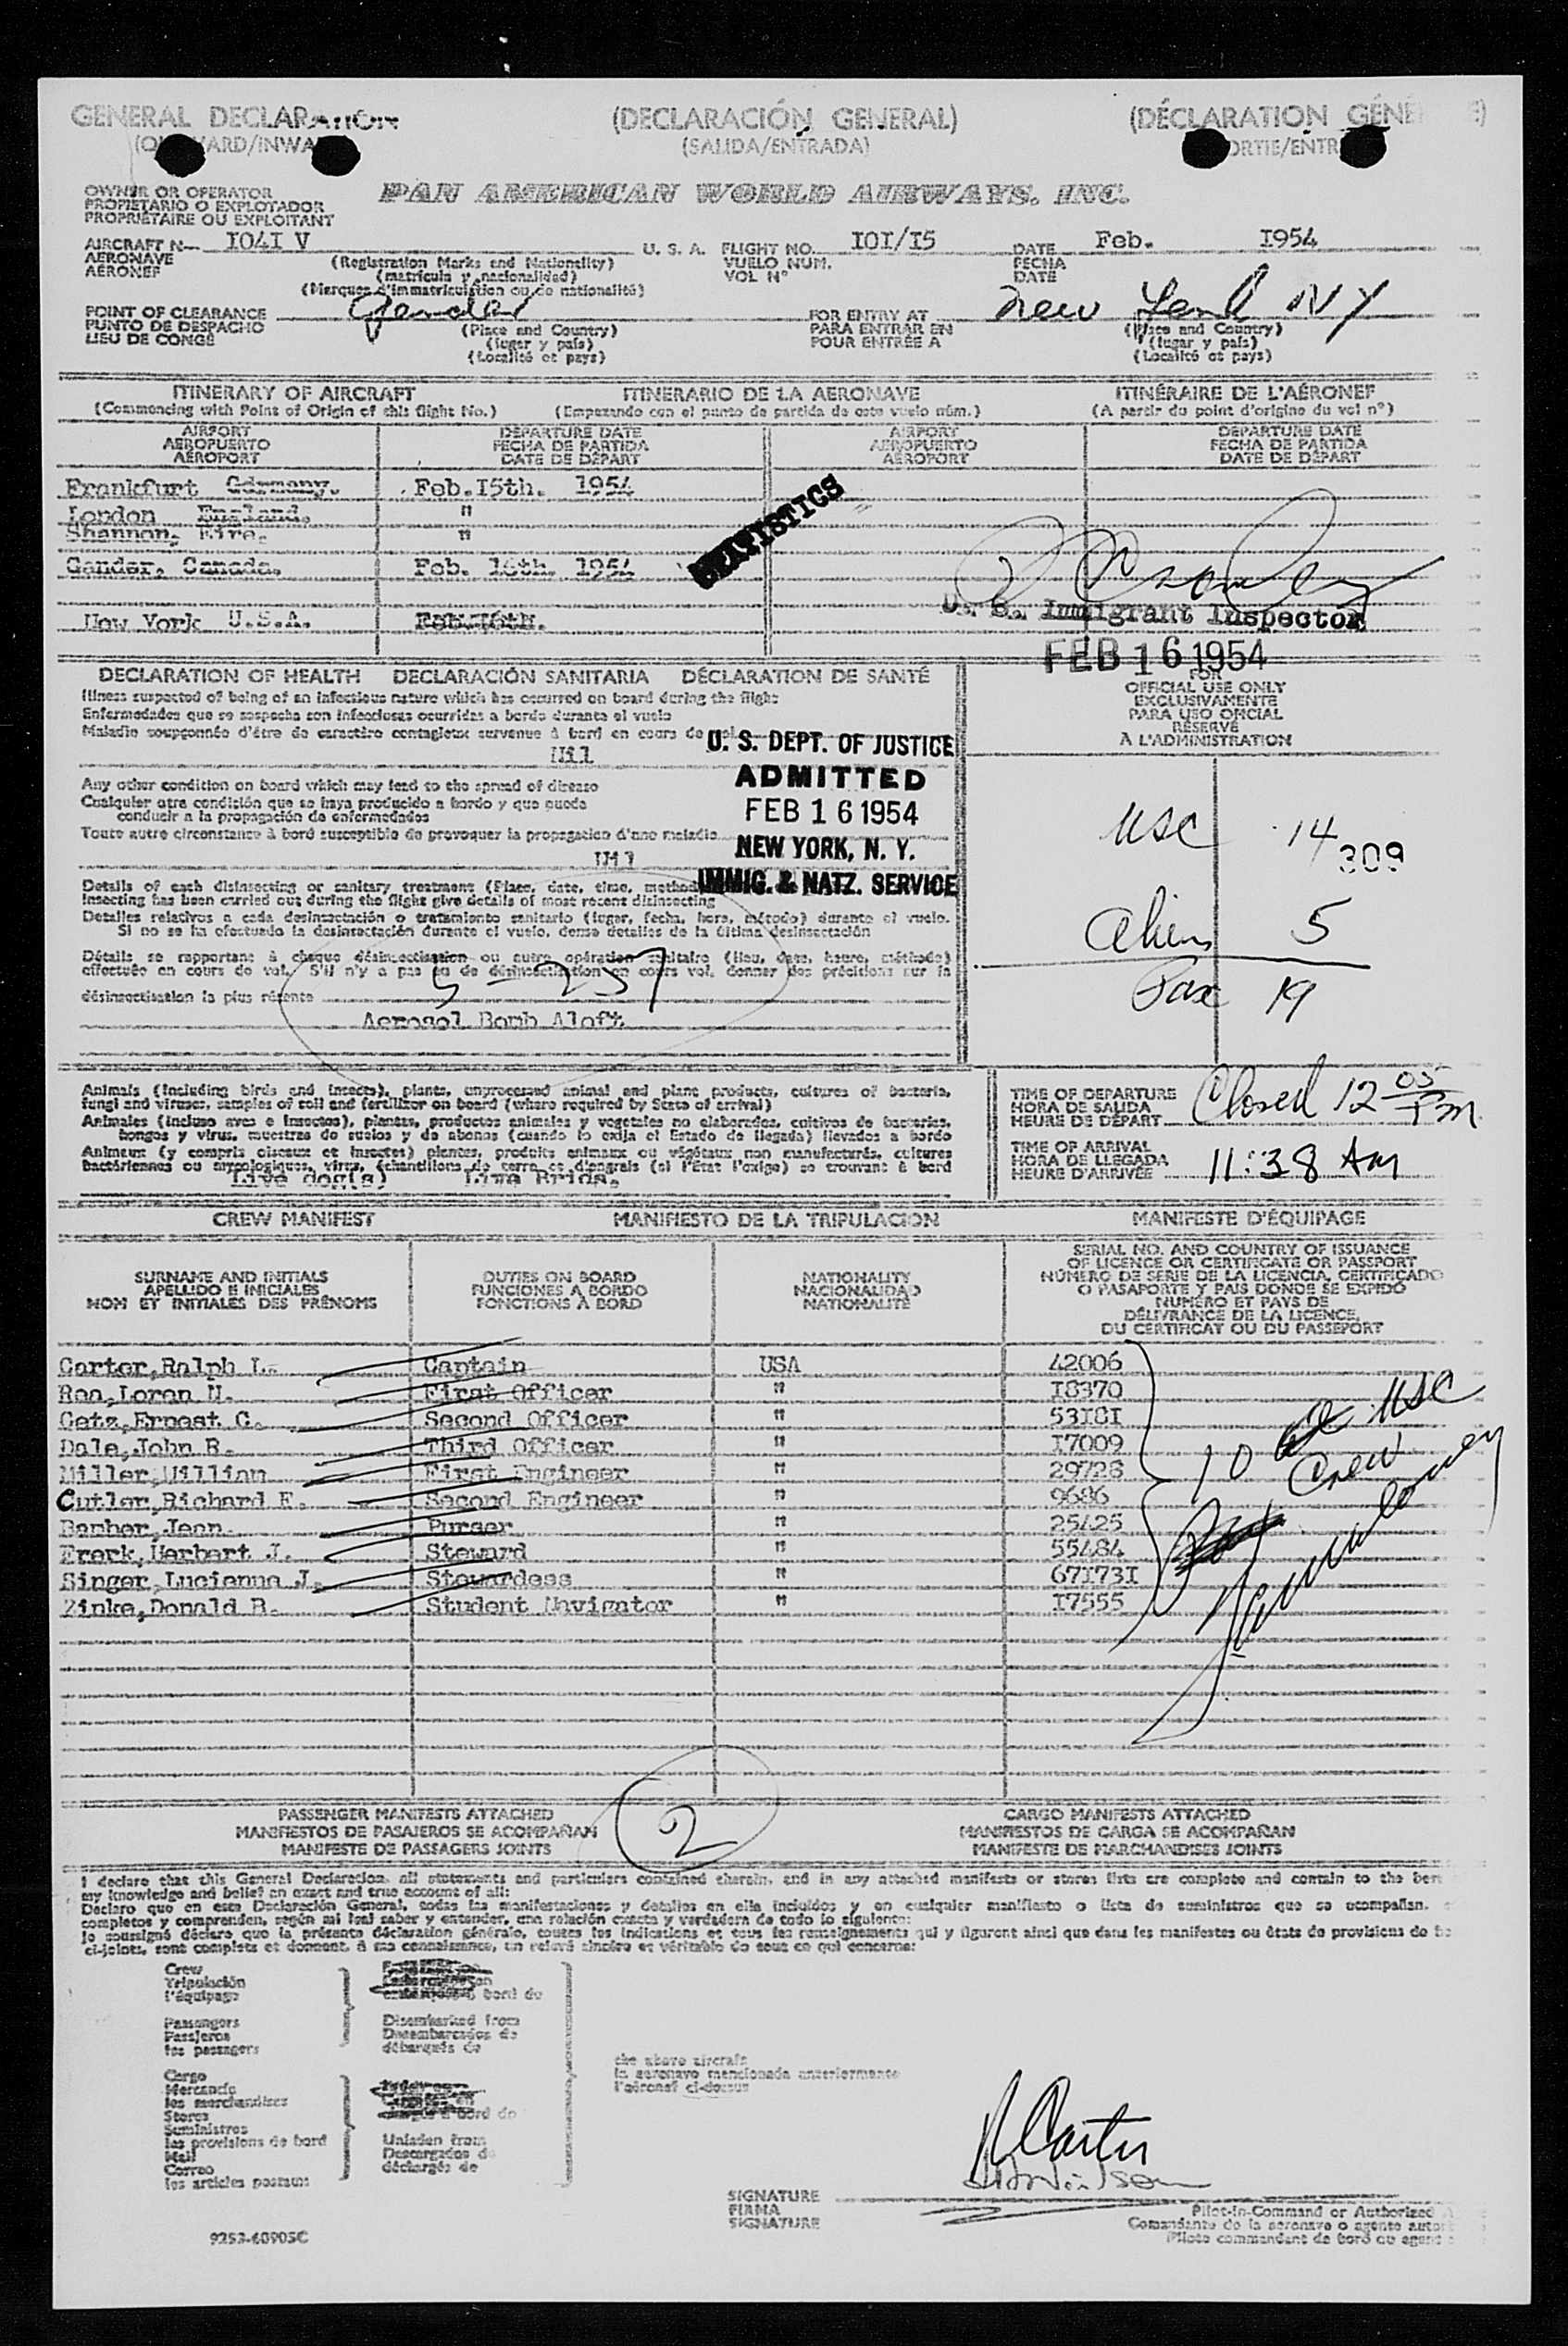 GENERAL DECLARATION (DECLARACIÓN GENERAL) (DÉCLARATION GÉNÉ
(SALIDA/ENTRADA)
OWNER OR OPERATOR
PROPIETARIO O EXPLOTADOR
PROPRIÉTAIRE OU EXPLOITANT
PAN AMERICAN WORLD AIRWAYS, INC.
AIRCRAFT N— IO4I V U. S. A. FLIGHT NO. IOI/I5 DATE Feb. I954
AERONAVE VUELO NUM. FECHA
AÉRONEF VOL N° DATE
(Registration Marks and Nationality)
(matrícula y nacionalidad)
(Marques d'immatriculation ou de nationalité)
POINT OF CLEARANCE Gander FOR ENTRY AT New York NY
PUNTO DE DESPACHO PARA ENTRAR EN
LIEU DE CONGÉ POUR ENTRÉE A
(Place and Country) (Place and Country)
(lugar y país) (lugar y país)
(Localité et pays) (Localité et pays)
ITINERARY OF AIRCRAFT ITINERARIO DE LA AERONAVE ITINÉRAIRE DE L'AÉRONEF
(Commencing with Point of Origin of this flight No.) (Empezando con el punto de partida de este vuelo núm.) (A partir du point d'origine du vol n°)
AIRPORT DEPARTURE DATE AIRPORT DEPARTURE DATE
AEROPUERTO FECHA DE PARTIDA AEROPUERTO FECHA DE PARTIDA
AÉROPORT DATE DE DÉPART AÉROPORT DATE DE DÉPART
Frankfurt Germany. Feb.I5th. I954
London England. "
Shannon, Eire. "
Gander, Canada. Feb. 16th. 1954
New York U.S.A. Feb.16th.
STATISTICS
U. S. Immigrant Inspector
FEB 16 1954
DECLARATION OF HEALTH DECLARACIÓN SANITARIA DÉCLARATION DE SANTÉ
Illness suspected of being of an infectious nature which has occurred on board during the flight
Enfermedades que se sospecha son infecciosas ocurridas a bordo durante el vuelo
Maladie soupçonnée d'être de caractère contagieux survenue à bord en cours de vol
Nil
Any other condition on board which may lead to the spread of disease
Cualquier otra condición que se haya producido a bordo y que pueda
conducir a la propagación de enfermedades
Toute autre circonstance à bord susceptible de provoquer la propagation d'une maladie
Nil
U. S. DEPT. OF JUSTICE
ADMITTED
FEB 16 1954
NEW YORK, N. Y.
IMMIG. & NATZ. SERVICE
Details of each disinsecting or sanitary treatment (Place, date, time, method
insecting has been carried out during the flight give details of most recent disinsecting
Detalles relativos a cada desinsectación o tratamiento sanitario (lugar, fecha, hora, método) durante el vuelo.
Si no se ha efectuado la desinsectación durante el vuelo, dense detalles de la última desinsectación
Détails se rapportant à chaque désinsectisation ou autre opération sanitaire (lieu, date, heure, méthode)
effectuée en cours de vol. S'il n'y a pas eu de désinsectisation en cours vol, donner des précisions sur la
désinsectisation la plus récente
5-257
Aerosol Bomb Aloft
FOR
OFFICIAL USE ONLY
EXCLUSIVAMENTE
PARA USO OFICIAL
RÉSERVÉ
À L'ADMINISTRATION
USC 14
309
Aliens 5
Pax 19
Animals (including birds and insects), plants, unprocessed animal and plant products, cultures of bacteria,
fungi and viruses, samples of soil and fertilizer on board (where required by State of arrival)
Animales (incluso aves e insectos), plantas, productos animales y vegetales no elaborados, cultivos de bacterias,
hongos y virus, muestras de suelos y de abonos (cuando lo exija el Estado de llegada) llevados a bordo
Animaux (y compris oiseaux et insectes) plantes, produits animaux ou végétaux non manufacturés, cultures
bactériennes ou mycologiques, virus, échantillons de terre et d'engrais (si l'État l'exige) se trouvant à bord
Live dog(s) Live Brids.
TIME OF DEPARTURE
HORA DE SALIDA
HEURE DE DÉPART Closed 12 05 Pm.
TIME OF ARRIVAL
HORA DE LLEGADA
HEURE D'ARRIVÉE 11:38 Am
CREW MANIFEST MANIFIESTO DE LA TRIPULACIÓN MANIFESTE D'ÉQUIPAGE
SURNAME AND INITIALS DUTIES ON BOARD NATIONALITY
APELLIDO E INICIALES FUNCIONES A BORDO NACIONALIDAD
NOM ET INITIALES DES PRÉNOMS FONCTIONS À BORD NATIONALITÉ
SERIAL NO. AND COUNTRY OF ISSUANCE
OF LICENCE OR CERTIFICATE OR PASSPORT
NÚMERO DE SERIE DE LA LICENCIA, CERTIFICADO
O PASAPORTE Y PAIS DONDE SE EXPIDÓ
NUMÉRO ET PAYS DE
DÉLIVRANCE DE LA LICENCE,
DU CERTIFICAT OU DU PASSEPORT
Carter,Ralph L. Captain USA 42006
Rea,Loren N. First Officer " I8370
Getz,Ernest C. Second Officer " 53I8I
Dale,John R. Third Officer " I7009
Miller,William First Engineer " 29728
Cutler,Richard E. Second Engineer " 9686
Bamber,Jean. Purser " 25425
Frerk,Herbert J. Steward " 55484
Singer,Lucienne J. Stewardess " 67I73I
Zinke,Donald B. Student Navigator " I7555
10 USC
Crew
2
PASSENGER MANIFESTS ATTACHED CARGO MANIFESTS ATTACHED
MANIFIESTOS DE PASAJEROS SE ACOMPAÑAN MANIFIESTOS DE CARGA SE ACOMPAÑAN
MANIFESTE DE PASSAGERS JOINTS MANIFESTE DE MARCHANDISES JOINTS
I declare that this General Declaration, all statements and particulars contained therein, and in any attached manifests or stores lists are complete and contain to the bes
my knowledge and belief an exact and true account of all:
Declaro que en esta Declaración General, todas las manifestaciones y detalles en ella incluídos y en cualquier manifiesto o lista de suministros que se acompañan.
completos y comprenden, según mi leal saber y entender, una relación exacta y verdadera de todo lo siguiente:
Je soussigné déclare que la présente déclaration générale, toutes les indications et tous les renseignements qui y figurent ainsi que dans les manifestes ou états de provisions de bo
ci-joints, sont complets et donnent, à ma connaissance, un relevé sincère et véritable de tout ce qui concerne:
Crew
Tripulación
l'équipage
Passengers Disembarked from
Pasajeros Desembarcados de
les passagers débarqués de
the above aircraft
la aeronave mencionada anteriormente
l'aéronef ci-dessus
Cargo
Mercancía
les marchandises
Stores
Suministros
les provisions de bord Unladen from
Mail Descargados de
Correo déchargés de
les articles postaux
R Carter
SIGNATURE
FIRMA
SIGNATURE
Pilot-in-Command or Authorized
Comandante de la aeronave o agente autor
Pilote commandant de bord ou agent
9253-60905C